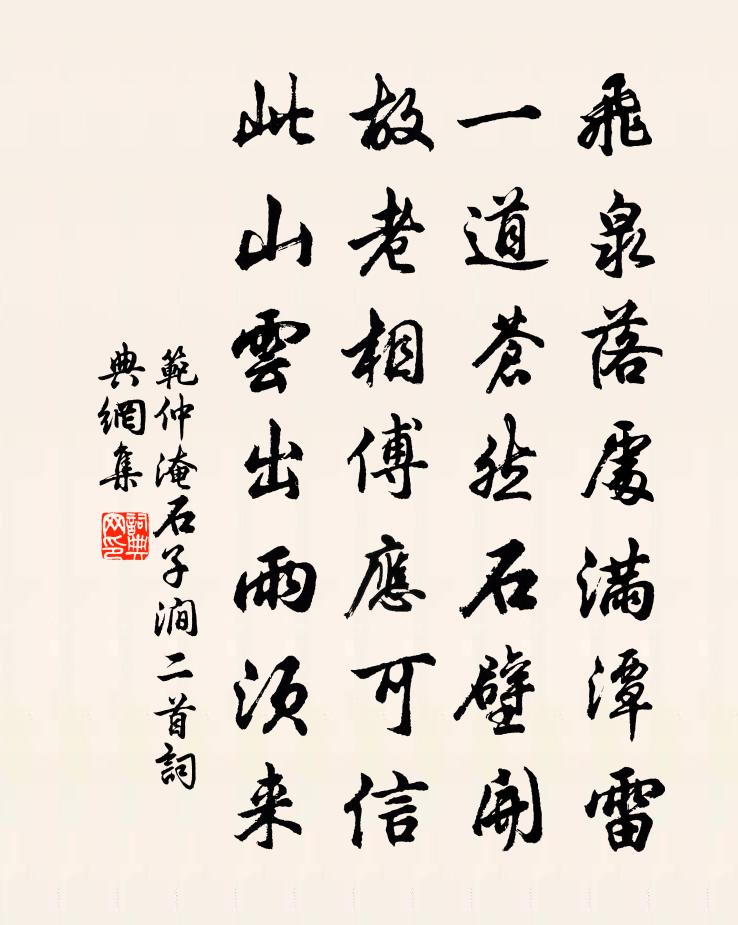 飛泉落處滿潭雷
一道蒼然石壁開
故老相傳應可信
此山雲出雨須来
範仲淹石子澗二首詞
典網集
詞典网印